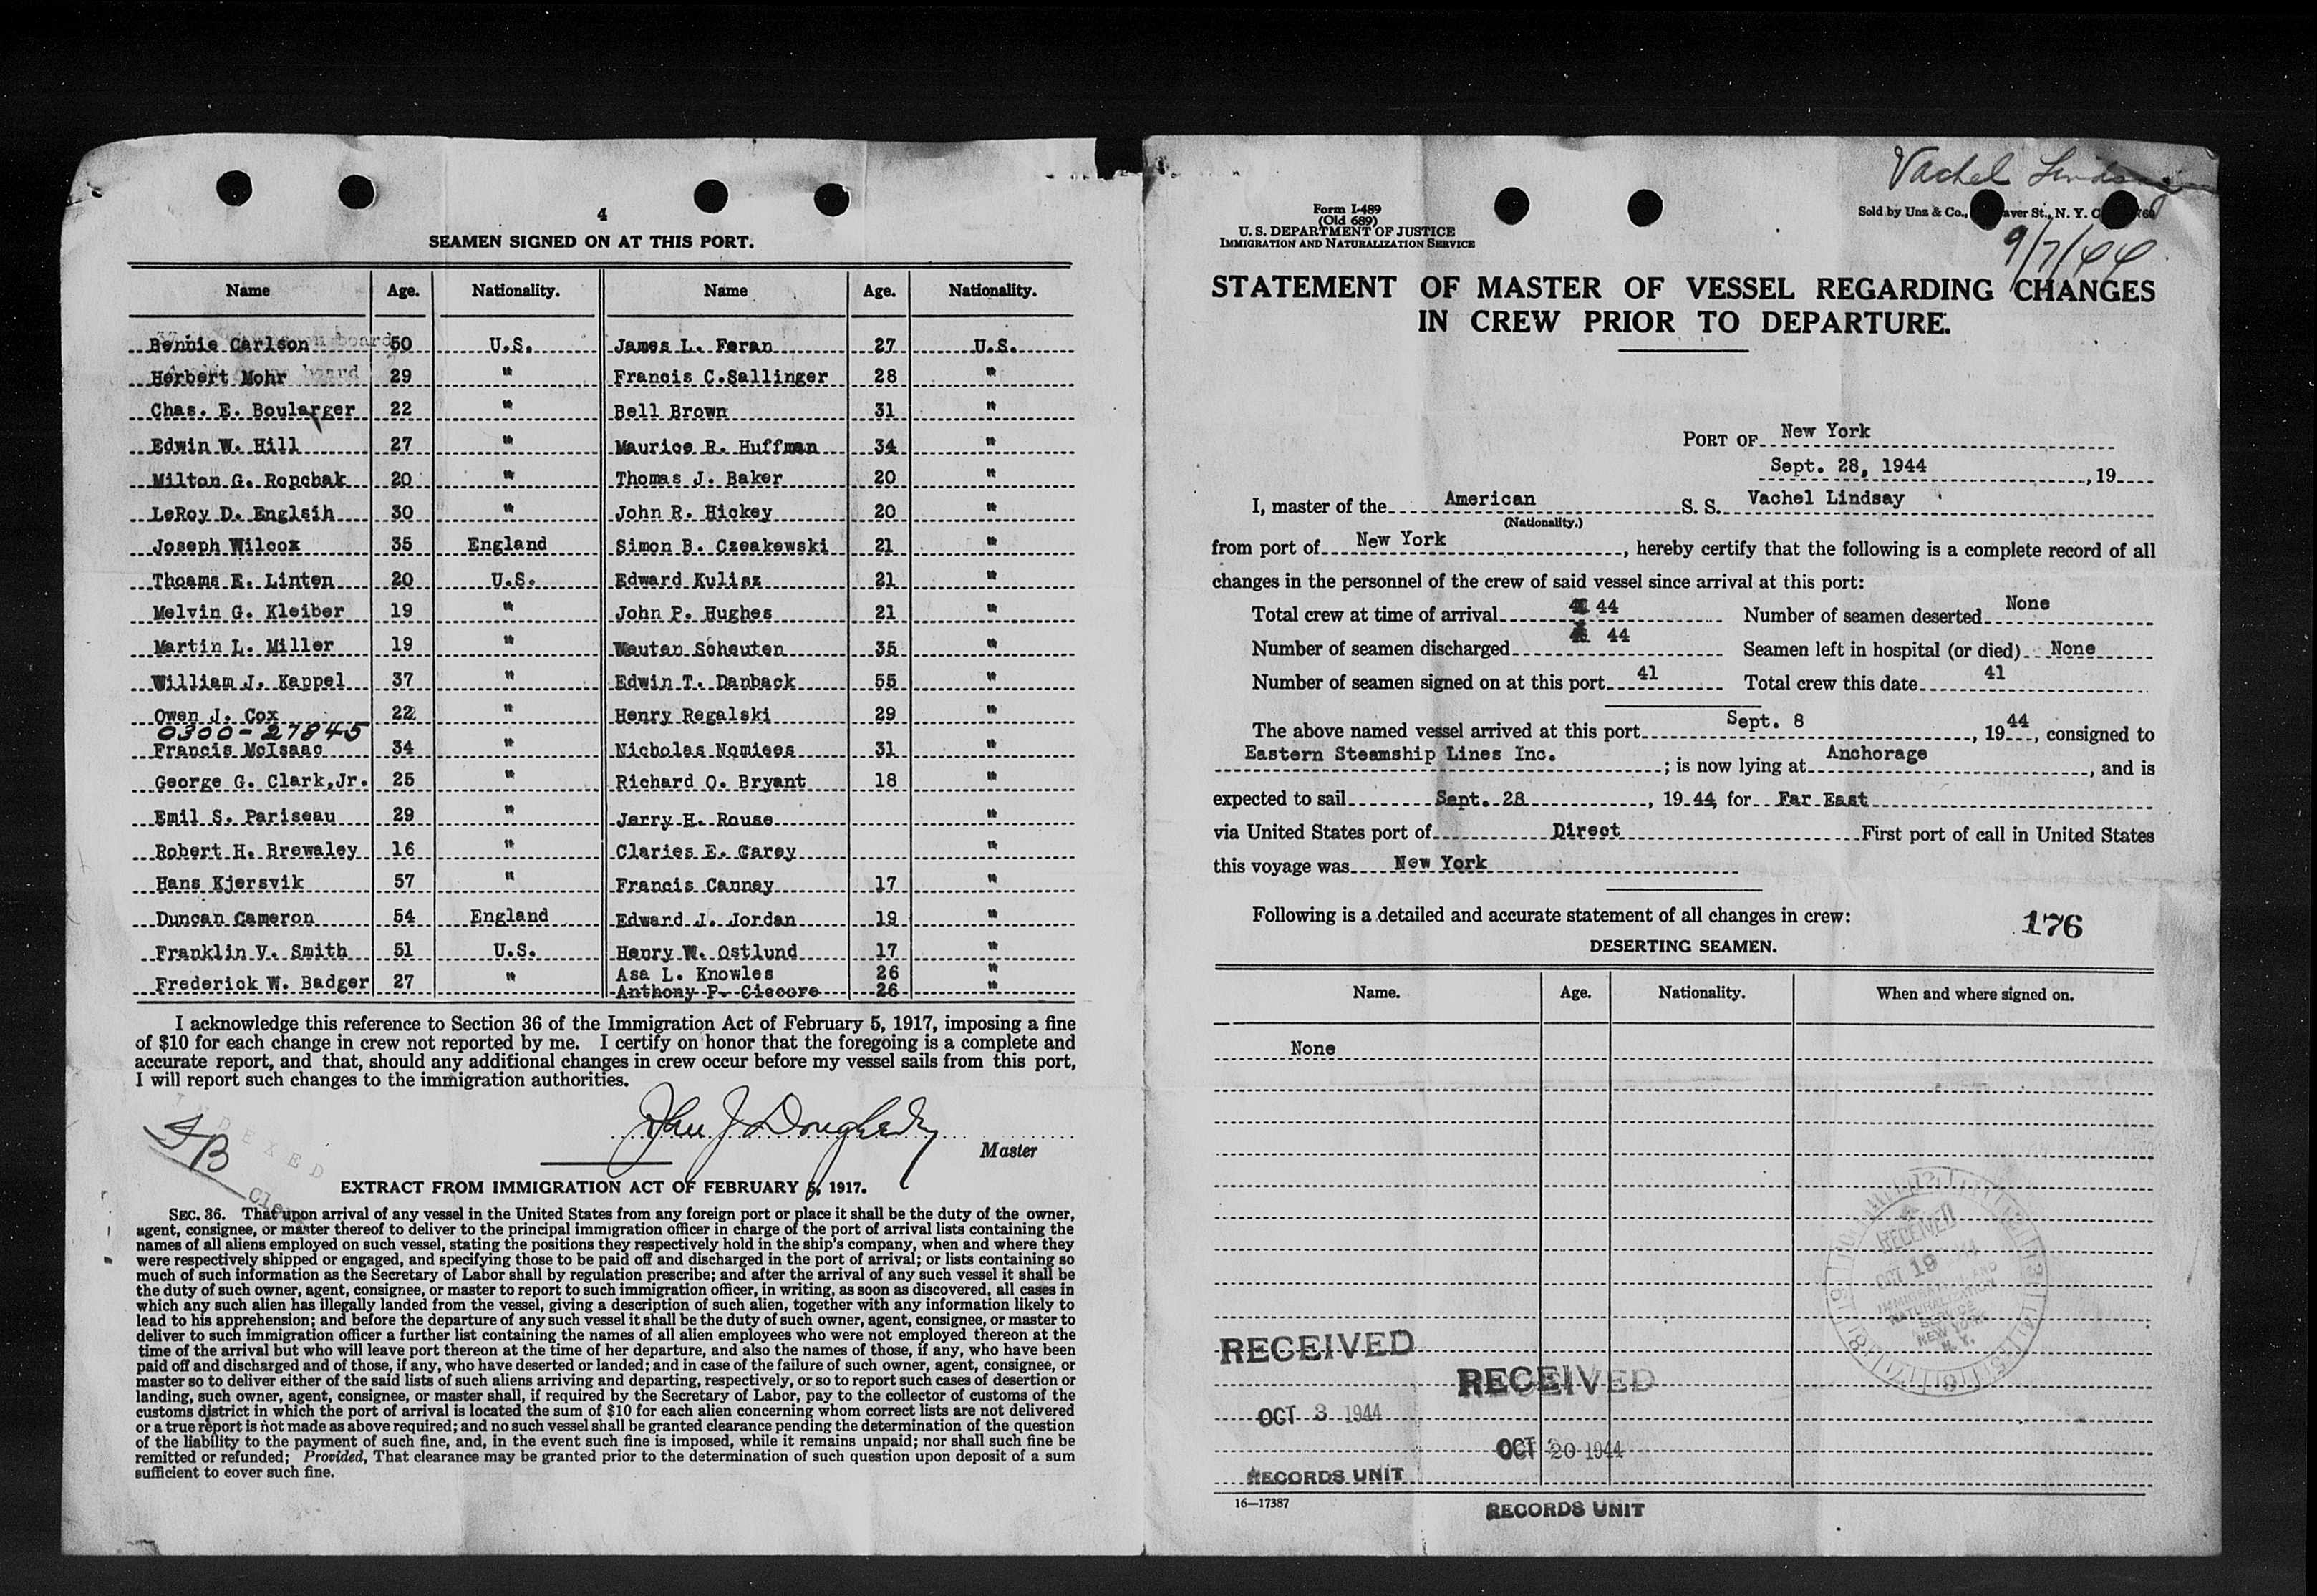 4
SEAMEN SIGNED ON AT THIS PORT.
Name Age. Nationality. Name Age. Nationality.
Bennie Carlson 50 U.S. James L. Feran 27 U.S.
Herbert Mohr 29 " Francis C.Sallinger 28 "
Chas. E. Boularger 22 " Bell Brown 31 "
Edwin W. Hill 27 " Maurice R. Huffman 34 "
Milton G. Ropchak 20 " Thomas J. Baker 20 "
LeRoy D. Englsih 30 " John R. Hickey 20 "
Joseph Wilcox 35 England Simon B. Czeakewski 21 "
Thoams E. Linten 20 U.S. Edward Kulisz 21 "
Melvin G. Kleiber 19 " John P. Hughes 21 "
Martin L. Miller 19 " Wautan Scheuten 35 "
William J. Kappel 37 " Edwin T. Danback 55 "
Owen J. Cox 22 " Henry Regalski 29 "
0300-27845
Francis McIsaac 34 " Nicholas Nomiees 31 "
George G. Clark,Jr. 25 " Richard O. Bryant 18 "
Emil S. Pariseau 29 " Jarry H. Rouse "
Robert H. Brewaley 16 " Claries E. Carey "
Hans Kjersvik 57 " Francis Canney 17 "
Duncan Cameron 54 England Edward J. Jordan 19 "
Franklin V. Smith 51 U.S. Henry W. Ostlund 17 "
Frederick W. Badger 27 " Asa L. Knowles 26 "
Anthony P. Ciccore 26 "
I acknowledge this reference to Section 36 of the Immigration Act of February 5, 1917, imposing a fine
of $10 for each change in crew not reported by me. I certify on honor that the foregoing is a complete and
accurate report, and that, should any additional changes in crew occur before my vessel sails from this port,
I will report such changes to the immigration authorities.
INDEXED
John J Dougherty
Master
EXTRACT FROM IMMIGRATION ACT OF FEBRUARY 5, 1917.
SEC. 36. That upon arrival of any vessel in the United States from any foreign port or place it shall be the duty of the owner,
agent, consignee, or master thereof to deliver to the principal immigration officer in charge of the port of arrival lists containing the
names of all aliens employed on such vessel, stating the positions they respectively hold in the ship's company, when and where they
were respectively shipped or engaged, and specifying those to be paid off and discharged in the port of arrival; or lists containing so
much of such information as the Secretary of Labor shall by regulation prescribe; and after the arrival of any such vessel it shall be
the duty of such owner, agent, consignee, or master to report to such immigration officer, in writing, as soon as discovered, all cases in
which any such alien has illegally landed from the vessel, giving a description of such alien, together with any information likely to
lead to his apprehension; and before the departure of any such vessel it shall be the duty of such owner, agent, consignee, or master to
deliver to such immigration officer a further list containing the names of all alien employees who were not employed thereon at the
time of the arrival but who will leave port thereon at the time of her departure, and also the names of those, if any, who have been
paid off and discharged and of those, if any, who have deserted or landed; and in case of the failure of such owner, agent, consignee, or
master so to deliver either of the said lists of such aliens arriving and departing, respectively, or so to report such cases of desertion or
landing, such owner, agent, consignee, or master shall, if required by the Secretary of Labor, pay to the collector of customs of the
customs district in which the port of arrival is located the sum of $10 for each alien concerning whom correct lists are not delivered
or a true report is not made as above required; and no such vessel shall be granted clearance pending the determination of the question
of the liability to the payment of such fine, and, in the event such fine is imposed, while it remains unpaid; nor shall such fine be
remitted or refunded; Provided, That clearance may be granted prior to the determination of such question upon deposit of a sum
sufficient to cover such fine.
Vachel Lindsay
Form I-489
(Old 689)
U. S. DEPARTMENT OF JUSTICE
IMMIGRATION AND NATURALIZATION SERVICE
Sold by Unz & Co., aver St., N. Y. C
9/7/44
STATEMENT OF MASTER OF VESSEL REGARDING CHANGES
IN CREW PRIOR TO DEPARTURE.
PORT OF New York
Sept. 28, 1944, 19
I, master of the American S. S. Vachel Lindsay
(Nationality.)
from port of New York, hereby certify that the following is a complete record of all
changes in the personnel of the crew of said vessel since arrival at this port:
Total crew at time of arrival 44 Number of seamen deserted None
Number of seamen discharged 44 Seamen left in hospital (or died) None
Number of seamen signed on at this port 41 Total crew this date 41
The above named vessel arrived at this port Sept. 8, 1944, consigned to
Eastern Steamship Lines Inc.; is now lying at Anchorage, and is
expected to sail Sept. 28, 1944, for Far East
via United States port of Direct First port of call in United States
this voyage was New York
Following is a detailed and accurate statement of all changes in crew:
176
DESERTING SEAMEN.
Name. Age. Nationality. When and where signed on.
None
RECEIVED
OCT 19
IMMIGRATION AND
NATURALIZATION
SERVICE
NEW YORK
N. Y.
RECEIVED
OCT 3 1944
RECORDS UNIT
RECEIVED
OCT 20 1944
RECORDS UNIT
16—17387